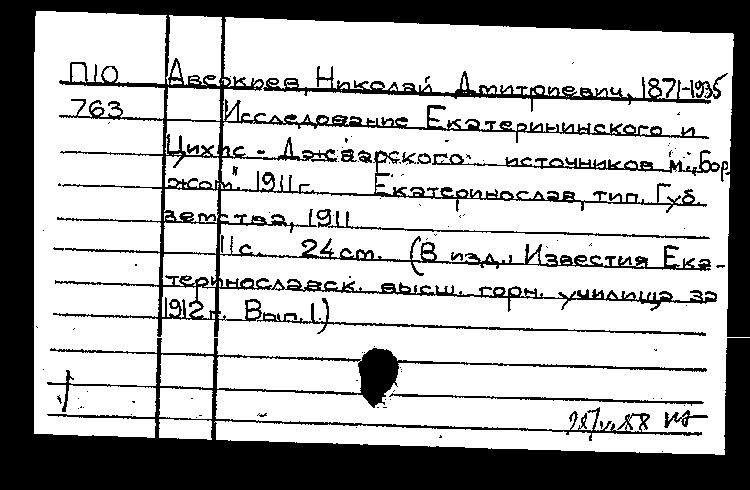 П10 Аверкиев, Николай Дмитриевич, 1871-1935
763 Исследование Екатерининского и
Цихис-Джварского источников м. „Бор-
жом" 1911г. Екатеринослав, тип. Губ.
земства, 1911
11с. 24см. (В изд.: Известия Ека-
теринославск. высш. горн. училища за
1912г. Вып. 1.)